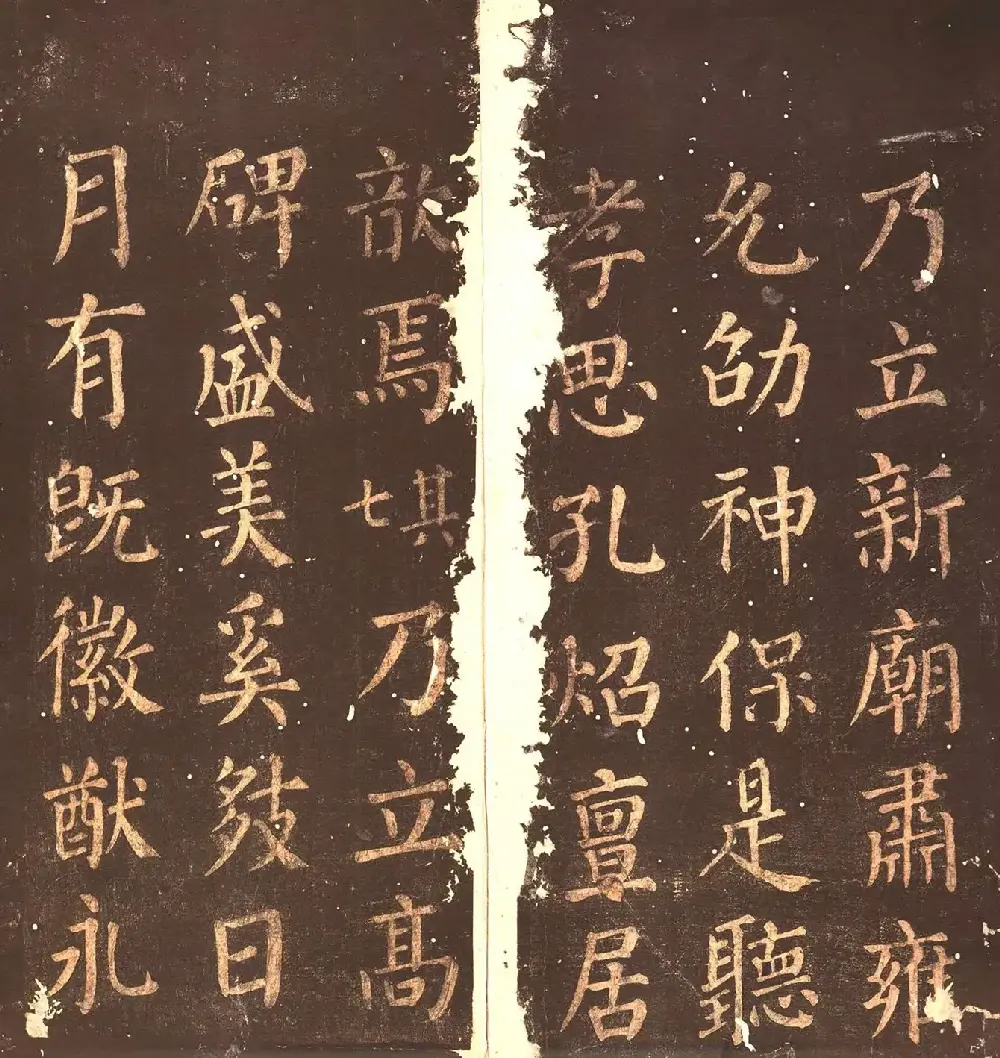 乃立新廟肅雍
允劭神保是聽
孝思孔炤亶居
歆焉其七乃立髙
碑盛美奚日
月有既徽猷永